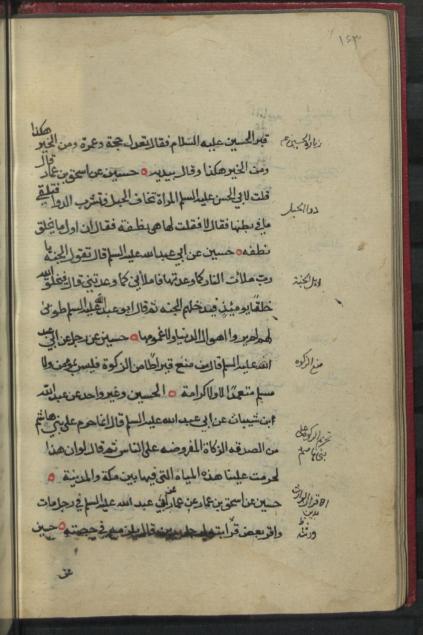 ١٤٣
قبر الحسين عليه السلام فقال تعدل حجة وعمرة ومن الخير هكذا
ومن الخير هكذا وقال بيديه حسين عن اسحق بن عمار قال
قلت لابي الحسن عليه السلم المراة تخاف الحبل فتشرب الدوا فتلقي
ما في بطنها فقال لا فقلت انما هي نطفة فقال ان اول ما يخلق
نطفه حسين عن ابي عبد الله عليه السلم قال تقول الجنة يا
رب ملأت النار كما وعدتها فاملأني كما وعدتني قال فيخلق الله
خلقا يومئذ فيدخلهم الجنة ثم قال ابو عبد الله عليه السلم طوبى
لهم لم يروا اهوال الدنيا ولا غمومها حسين عن رجل عن ابي عبد
الله عليه السلم قال من منع قيراطا من الزكوة فليس بمؤمن ولا
مسلم ولا كرامة الحسين وغير واحد عن عبد الله
ابن عن ابي عبد الله عليه السلم قال انما حرم على بني هاشم
من الصدقه الزكاة المفروضه على الناس ثم قال لولا ان هذا
لحرمت علينا هذه المياه التي فيما بين مكة والمدينة
حسين عن اسحق بن عمار عن ابي عبد الله عليه السلم في رجل مات
واقر بعض ورثته لرجل بدين قال يلزمه في حصته حسين
زيارة الحسين ع
دوا الحبل
اهل الجنة
منع الزكوة
تحريم الزكوة على
بني هاشم
اقرار الوارث
بدين